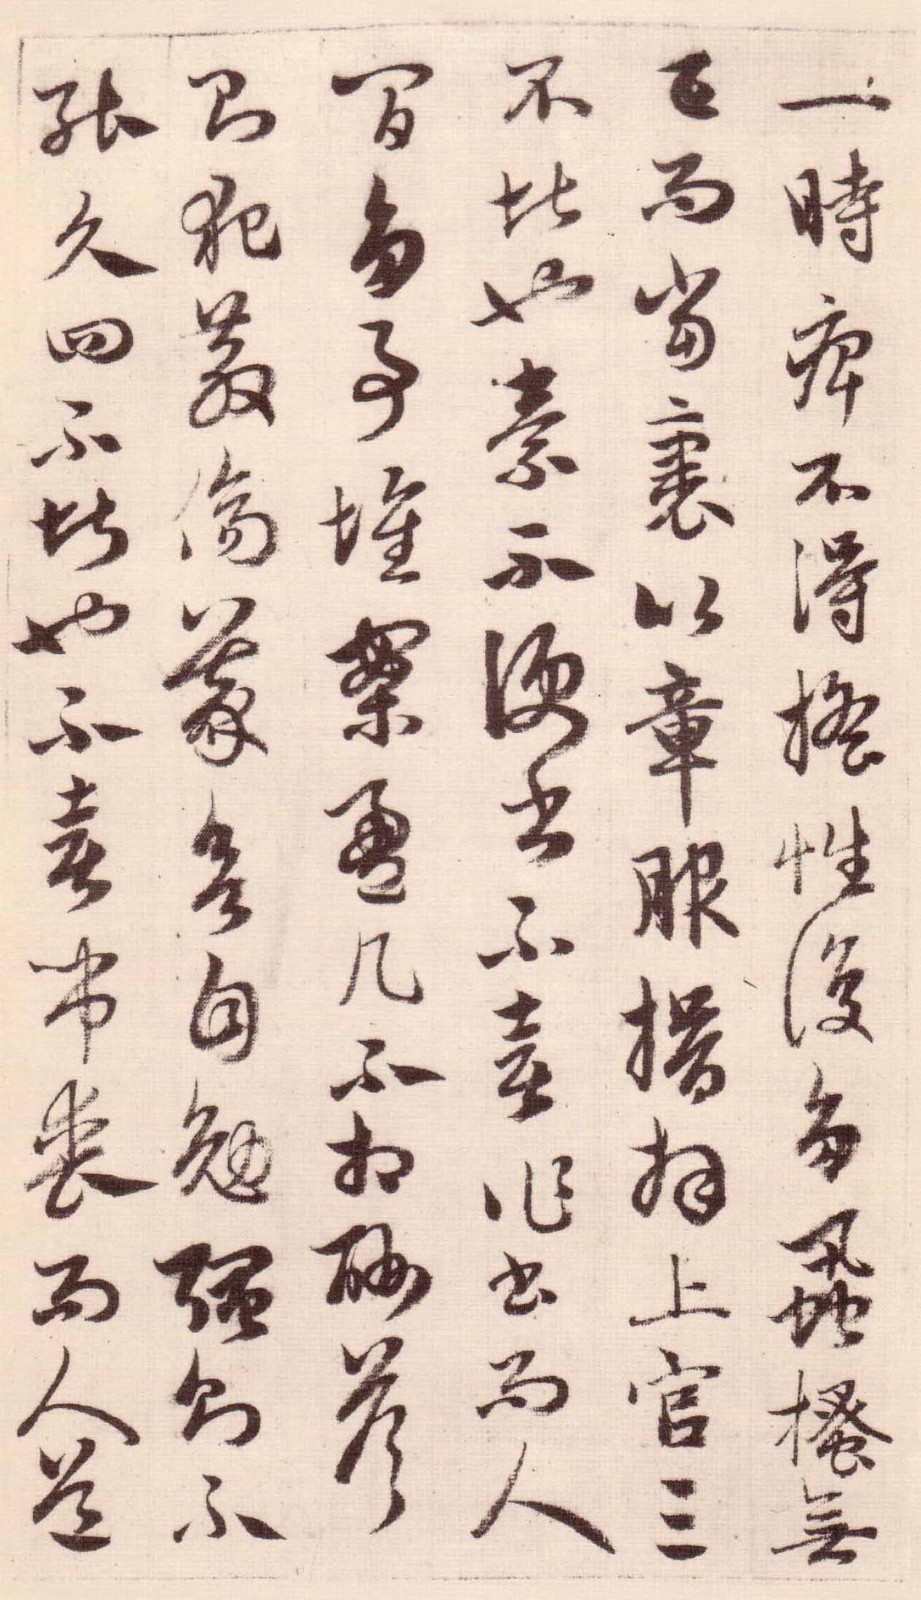 一時痺不得搖性復多蝨搔無
已而當裹以章服揖拜上官三
不堪也素不便書不喜作書而人
間多事堆案盈几不相酬答
則犯教傷義欲自勉強則不
能久四不堪也不喜弔喪而人道